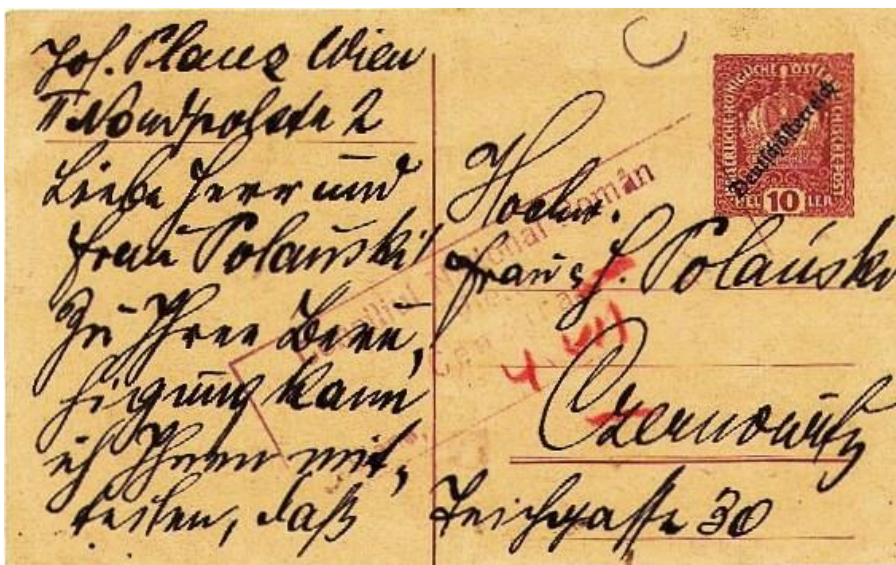 Jos. Planz Wien
II Nordpolstr 2
Liebe Herr und
Frau Polanski!
Zu Ihrer Beru,
higung kann
ich Ihnen mit,
teilen, daß
KAISERLICHE KÖNIGLICHE ÖSTERREICHISCHE POST
Deutschösterreich
HEL 10 LER
Consiliul Național Român
Cenzura
4. VII
Hochw.
Frau J. Polański
Czernowitz
Teichgasse 30